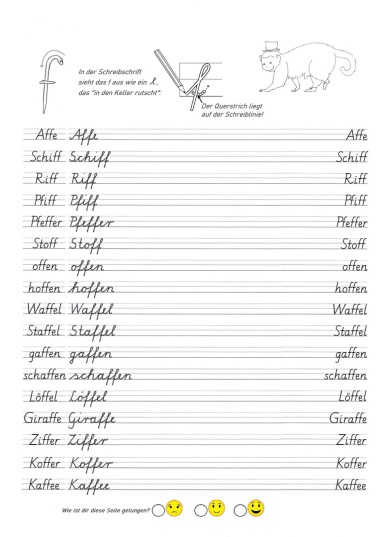 In der Schreibschrift
sieht das f aus wie ein l,
das "in den Keller rutscht".
Der Querstrich liegt
auf der Schreiblinie!
Affe Affe Affe
Schiff Schiff Schiff
Riff Riff Riff
Pfiff Pfiff Pfiff
Pfeffer Pfeffer Pfeffer
Stoff Stoff Stoff
offen offen offen
hoffen hoffen hoffen
Waffel Waffel Waffel
Staffel Staffel Staffel
gaffen gaffen gaffen
schaffen schaffen schaffen
Löffel Löffel Löffel
Giraffe Giraffe Giraffe
Ziffer Ziffer Ziffer
Koffer Koffer Koffer
Kaffee Kaffee Kaffee
Wie ist dir diese Seite gelungen?